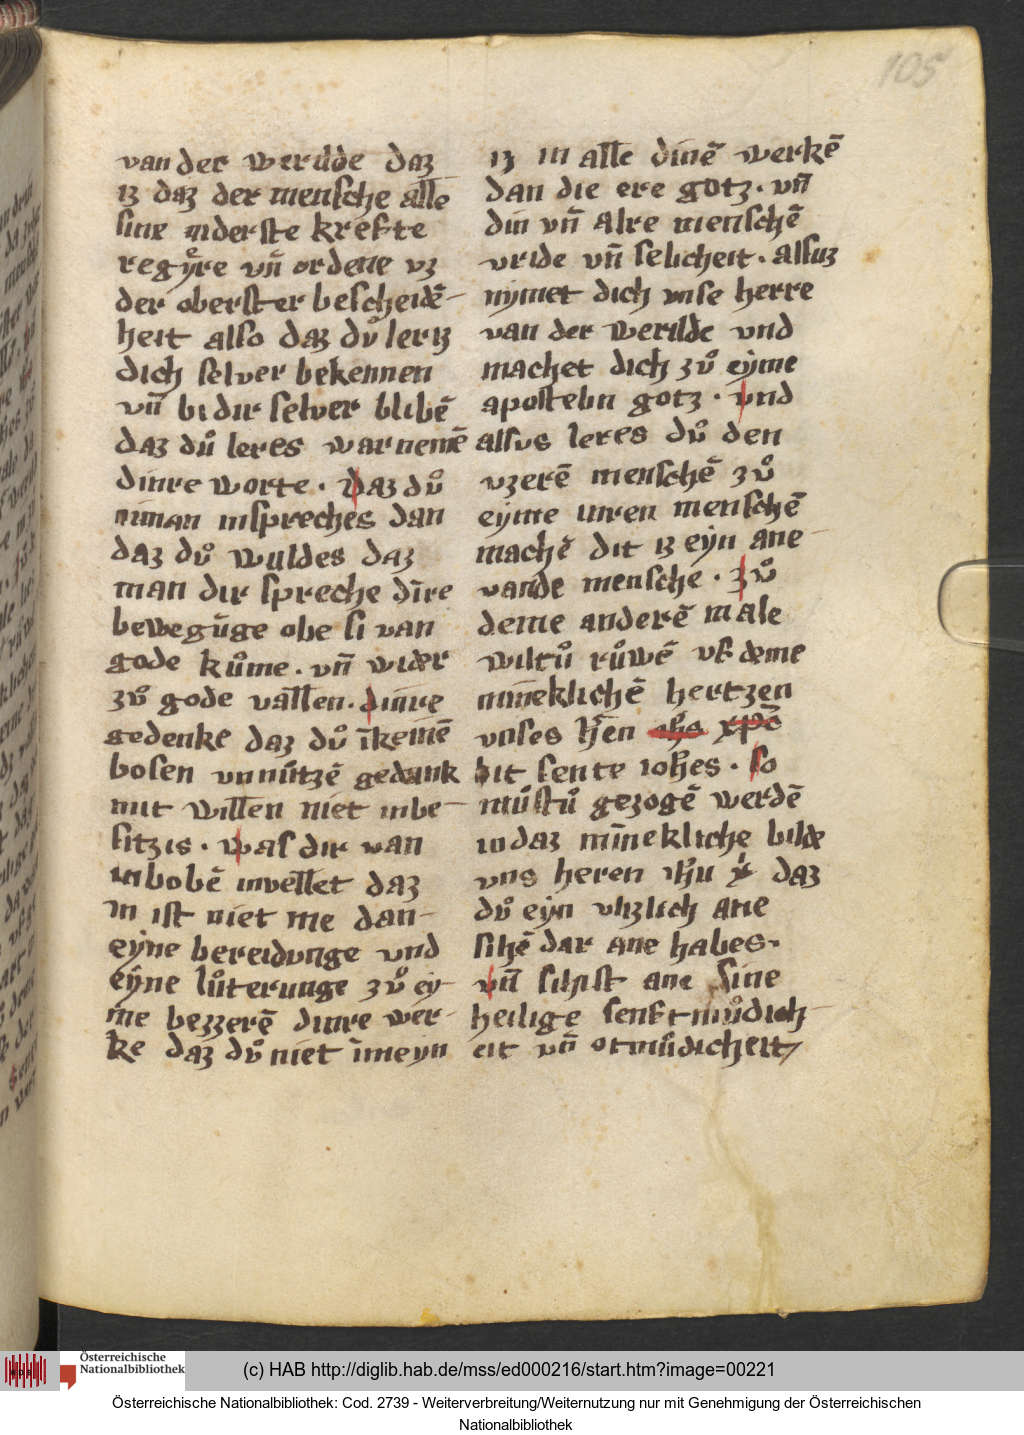 105
van der werilde daz
iz daz der mensche alle
sine inderste krefte
regyͤre vn̄ ordene vz
der oberster bescheidē
heit also daz dvͦ leriz
dich selver bekennen
vn̄ bi dir selver blibē
daz dvͦ leres warnemē
dinre worte . Daz dvͦ
niman inspreches dan
daz dvͦ wuldes daz
man dir spreche dīre
bewegūge obe si van
gode kuͦme . vn̄ wider
zvͦ gode vallen . dinre
gedenke daz dvͦ īkeinē
bosen vnnūtzē gedank
mit willen niet inbe
sitzis . was dir van
inbobē invellet daz
in ist niet me dan
eyne bereidunge vnd
eyne luͦterunge zvͦ ey
me bezzerē dinre wer
ke daz dvͦ niet īmeyn
iz in alle dinē werkē
dan die ere gotz . vn̄
din vn̄ alre menschē
vride vn̄ selicheit . alsuz
nymet dich vnse herre
van der werilde vnd
machet dich zvͦ eyme
apostelin gotz . vnd
alsvs leres dvͦ den
vzerē menschē zvͦ
eyme inren menschē
machē dit iz eyn ane
vande mensche . zvͦ
deme anderē male
wiltuͦ ruͦwē vf deme
minneklichē hertzen
vnses h̄ren ih̄s xp̄c
mit sente ioh̄es . so
muͦstuͦ gezogē werdē
in daz mīnekliche bilde
vns heren ih̄u x̄ daz
dvͦ eyn vlizlich ane
sihē dar ane habes .
vn̄ sihist ane sine
heilige senftmuͦdich
eit vn̄ otmuͦdicheit
(c) HAB http://diglib.hab.de/mss/ed000216/start.htm?image=00221
Österreichische
Nationalbibliothek
Österreichische Nationalbibliothek: Cod. 2739 - Weiterverbreitung/Weiternutzung nur mit Genehmigung der Österreichischen
Nationalbibliothek